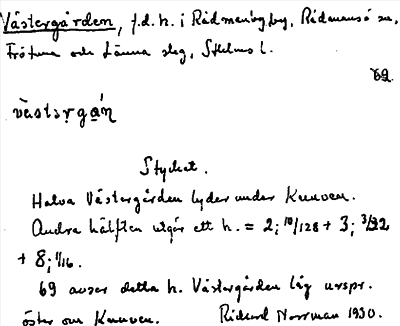 Västergården, f.d. h. i Rådmanby by, Rådmansö sn,
Frötuna och Länna slg, Sthlms l.
69.
västərgạ́ṇ
Styckat.
Halva Västergården lyder under Kunven.
Andra hälften utgör ett h. = 2; 10/128 + 3; 3/32
+ 8; 1/16.
69 avser detta h. Västergården låg urspr.
öster om Kunven. Rickard Norrman 1930.